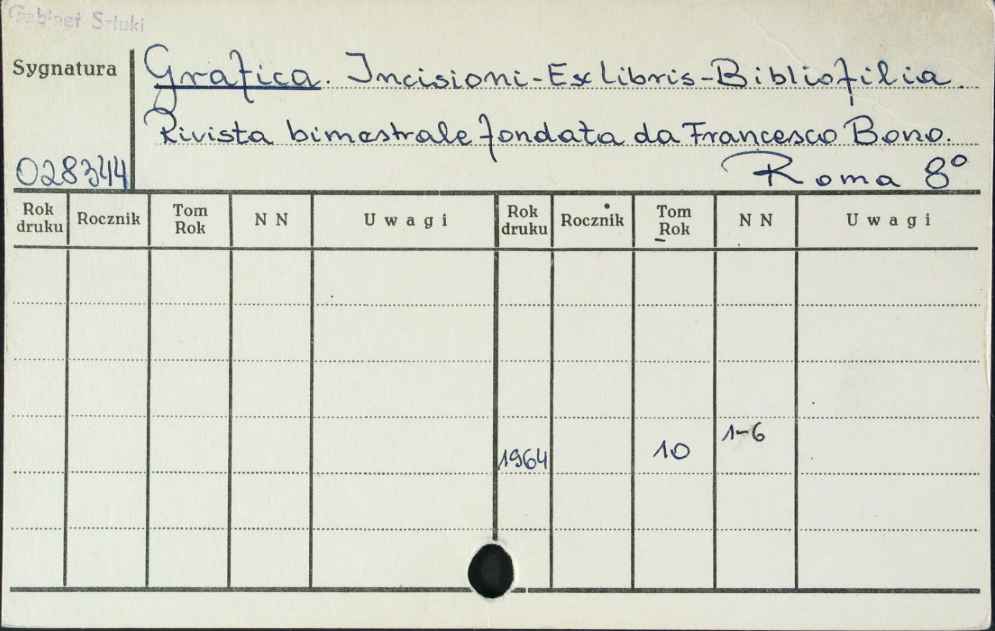 Gabinet Sztuki
Sygnatura
Grafica. Incisioni-Exlibris-Bibliofilia.
Rivista bimestrale fondata da Francesco Bono.
028344
Roma 8°
Rok druku Rocznik Tom Rok N N Uwagi Rok druku Rocznik Tom Rok N N Uwagi
1964 10 1-6